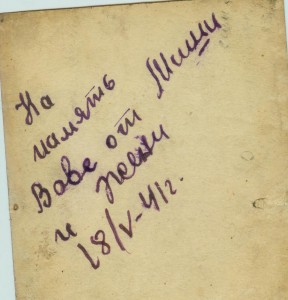 На
память
Вове от Миши
и Жени
18/V-41г.